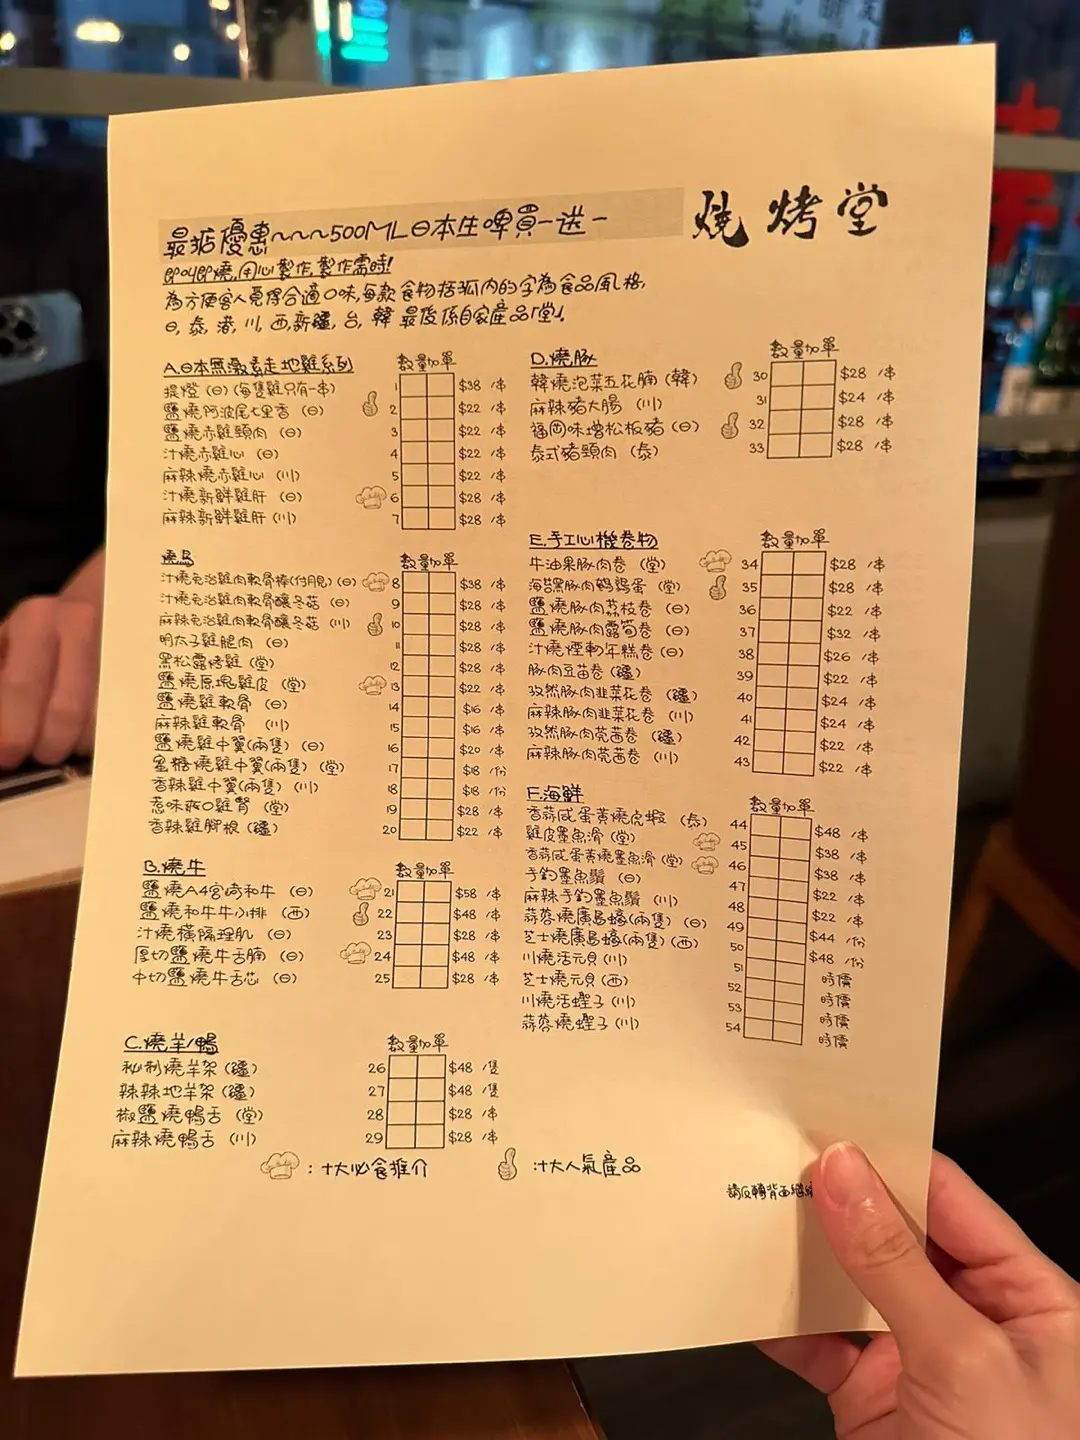 最掂優惠~~~500ML日本生啤買一送一
燒烤堂
即叫即燒,用心製作,製作需時!
為方便客人覓得合適口味,每款食物括弧內的字為食品風格,
日,泰,港,川,西,新疆,台,韓 最後係自家產品「堂」.
A.日本無激素走地雞系列 數量加單
提燈(日)(每隻雞只有一串) 1 $38 /串
鹽燒阿波尾七里香(日) 2 $22 /串
鹽燒赤雞頸肉(日) 3 $22 /串
汁燒赤雞心(日) 4 $22 /串
麻辣燒赤雞心(川) 5 $22 /串
汁燒新鮮雞肝(日) 6 $28 /串
麻辣新鮮雞肝(川) 7 $28 /串
燒鳥 數量加單
汁燒免治雞肉軟骨棒(付月見)(日) 8 $38 /串
汁燒免治雞肉軟骨釀冬菇(日) 9 $28 /串
麻辣免治雞肉軟骨釀冬菇(川) 10 $28 /串
明太子雞腿肉(日) 11 $28 /串
黑松露烤雞(堂) 12 $28 /串
鹽燒原塊雞皮(堂) 13 $22 /串
鹽燒雞軟骨(日) 14 $16 /串
麻辣雞軟骨(川) 15 $16 /串
鹽燒雞中翼(兩隻)(日) 16 $20 /串
蜜糖燒雞中翼(兩隻)(堂) 17 $18 /份
香辣雞中翼(兩隻)(川) 18 $18 /份
惹味爽口雞腎(堂) 19 $28 /串
香辣雞腳根(疆) 20 $22 /串
B.燒牛 數量加單
鹽燒A4宮崎和牛(日) 21 $58 /串
鹽燒和牛牛小排(西) 22 $48 /串
汁燒橫隔理肌(日) 23 $28 /串
厚切鹽燒牛舌腩(日) 24 $48 /串
中切鹽燒牛舌芯(日) 25 $28 /串
C.燒羊/鴨 數量加單
秘制燒羊架(疆) 26 $48 /隻
辣辣地羊架(疆) 27 $48 /隻
椒鹽燒鴨舌(堂) 28 $28 /串
麻辣燒鴨舌(川) 29 $28 /串
D.燒豚 數量加單
韓燒泡菜五花腩(韓) 30 $28 /串
麻辣豬大腸(川) 31 $24 /串
福岡味增松板豬(日) 32 $28 /串
泰式豬頸肉(泰) 33 $28 /串
E.手工心機卷物 數量加單
牛油果豚肉卷(堂) 34 $28 /串
海苔黑豚肉鵪鶉蛋(堂) 35 $28 /串
鹽燒豚肉荔枝卷(日) 36 $22 /串
鹽燒豚肉露筍卷(日) 37 $32 /串
汁燒煙韌年糕卷(日) 38 $26 /串
豚肉豆苗卷(疆) 39 $22 /串
孜然豚肉韭菜花卷(疆) 40 $24 /串
麻辣豚肉韭菜花卷(川) 41 $24 /串
孜然豚肉莞茜卷(疆) 42 $22 /串
麻辣豚肉莞茜卷(川) 43 $22 /串
F.海鮮 數量加單
香蒜咸蛋黃燒虎蝦(泰) 44 $48 /串
雞皮墨魚滑(堂) 45 $38 /串
香蒜咸蛋黃燒墨魚滑(堂) 46 $38 /串
手釣墨魚鬚(日) 47 $22 /串
麻辣手釣墨魚鬚(川) 48 $22 /串
蒜蓉燒廣島蠔(兩隻)(日) 49 $44 /份
芝士燒廣島蠔(兩隻)(西) 50 $48 /份
川燒活元貝(川) 51 時價
芝士燒元貝(西) 52 時價
川燒活蟶子(川) 53 時價
蒜蓉燒蟶子(川) 54 時價
:十大必食推介
:十大人氣產品
請反轉背面繼續